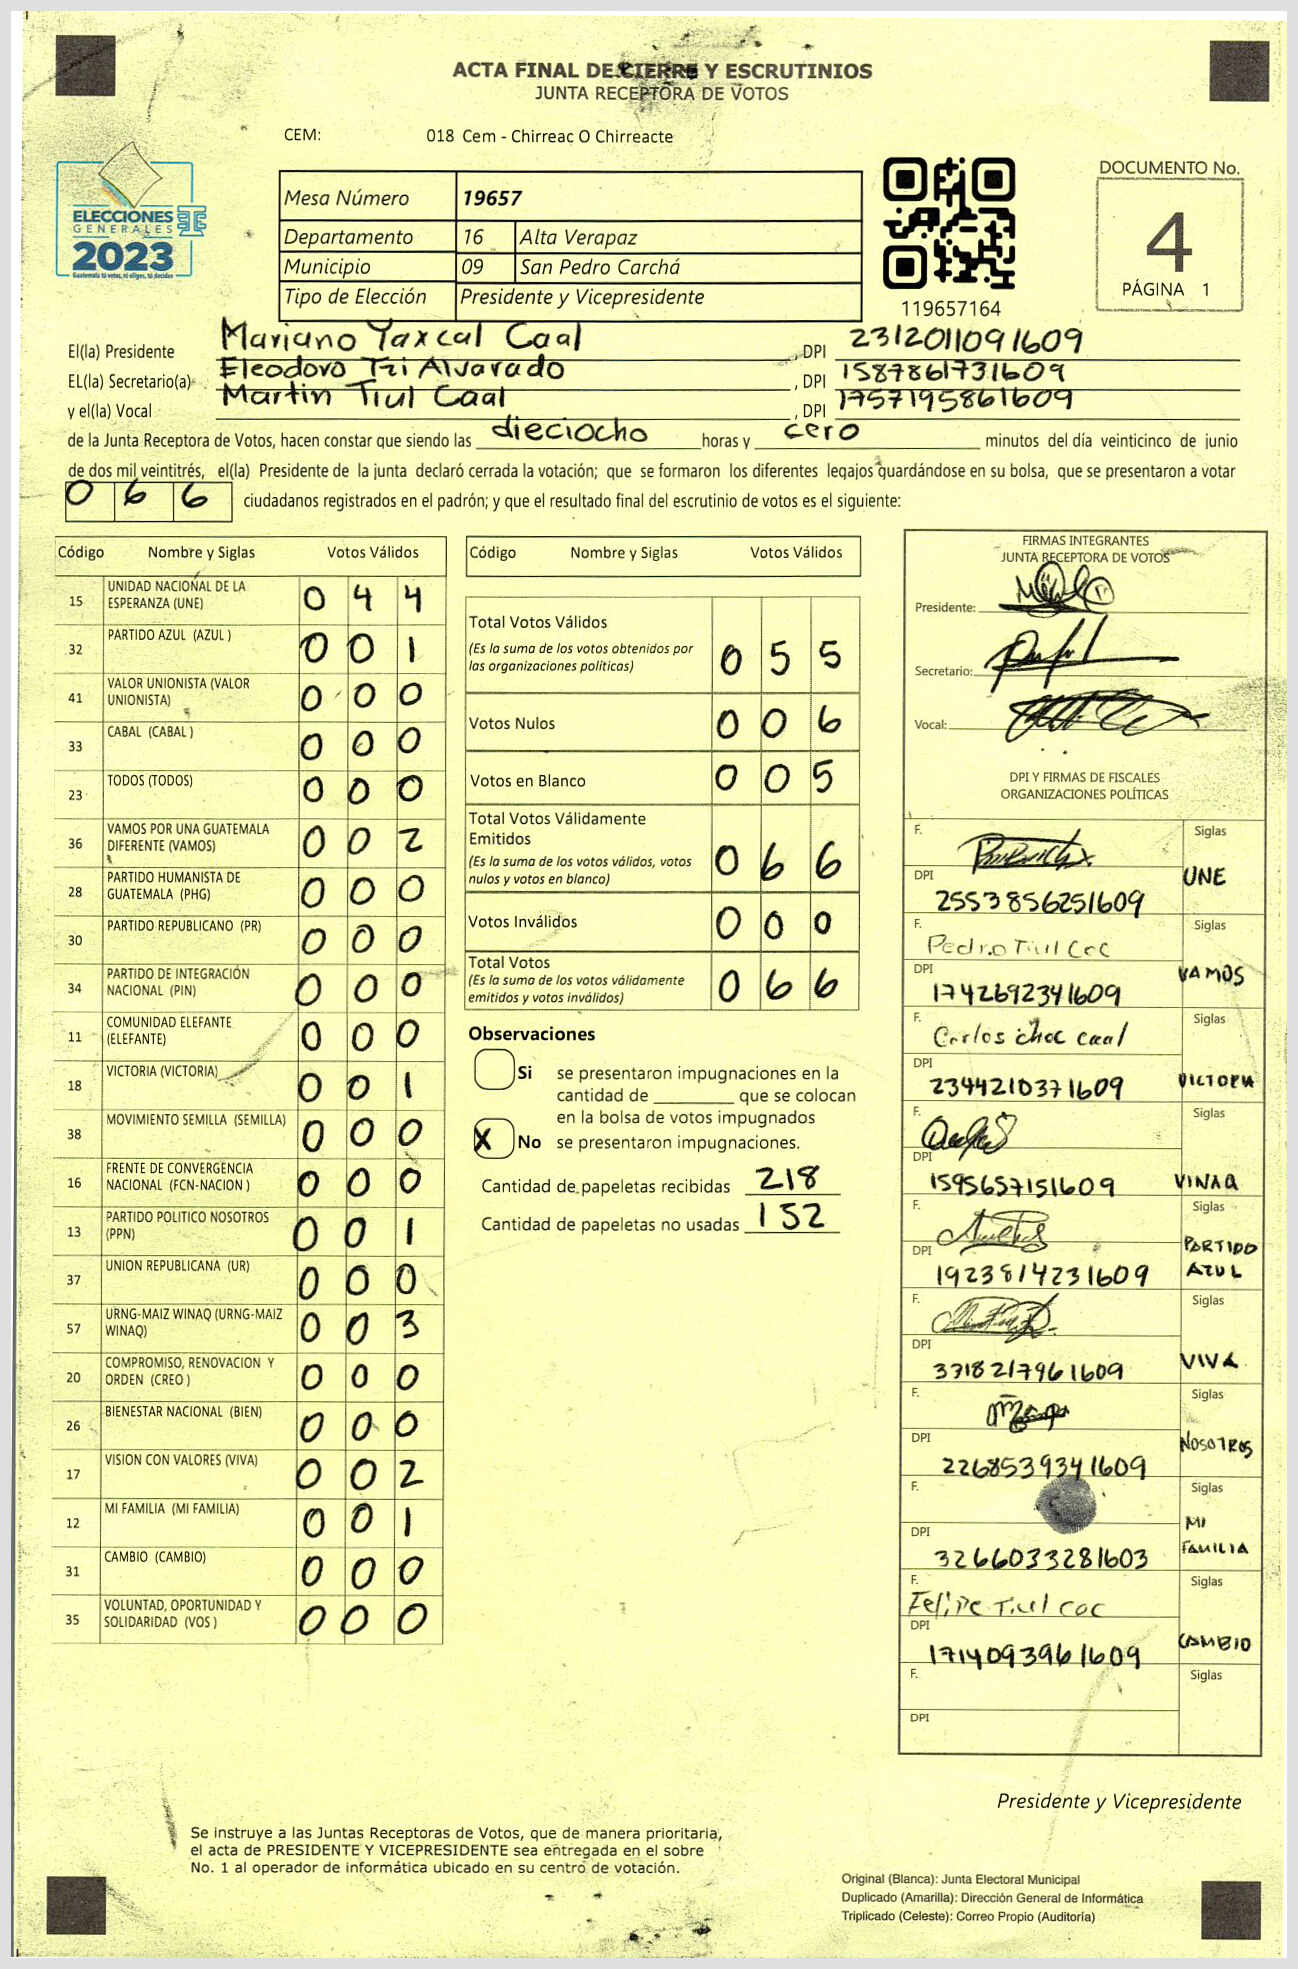 ACTA FINAL DE CIERRE Y ESCRUTINIOS
JUNTA RECEPTORA DE VOTOS
CEM: 018 Cem - Chirreac O Chirreacte
ELECCIONES
GENERALES
2023
Guatemala tú votas, tú eliges, tú decides
Mesa Número 19657
Departamento 16 Alta Verapaz
Municipio 09 San Pedro Carchá
Tipo de Elección Presidente y Vicepresidente
119657164
DOCUMENTO No.
4
PÁGINA 1
El(la) Presidente Mariano Yaxcal Caal , DPI 2312011091609
EL(la) Secretario(a) Eleodoro Tzi Alvarado , DPI 1587861731609
y el(la) Vocal Martin Tiul Caal , DPI 1757195861609
de la Junta Receptora de Votos, hacen constar que siendo las dieciocho horas y cero minutos del día veinticinco de junio
de dos mil veintitrés, el(la) Presidente de la junta declaró cerrada la votación; que se formaron los diferentes legajos guardándose en su bolsa, que se presentaron a votar
0 6 6 ciudadanos registrados en el padrón; y que el resultado final del escrutinio de votos es el siguiente:
Código Nombre y Siglas Votos Válidos
15 UNIDAD NACIONAL DE LA ESPERANZA (UNE) 0 4 4
32 PARTIDO AZUL (AZUL ) 0 0 1
41 VALOR UNIONISTA (VALOR UNIONISTA) 0 0 0
33 CABAL (CABAL ) 0 0 0
23 TODOS (TODOS) 0 0 0
36 VAMOS POR UNA GUATEMALA DIFERENTE (VAMOS) 0 0 2
28 PARTIDO HUMANISTA DE GUATEMALA (PHG) 0 0 0
30 PARTIDO REPUBLICANO (PR) 0 0 0
34 PARTIDO DE INTEGRACIÓN NACIONAL (PIN) 0 0 0
11 COMUNIDAD ELEFANTE (ELEFANTE) 0 0 0
18 VICTORIA (VICTORIA) 0 0 1
38 MOVIMIENTO SEMILLA (SEMILLA) 0 0 0
16 FRENTE DE CONVERGENCIA NACIONAL (FCN-NACION ) 0 0 0
13 PARTIDO POLITICO NOSOTROS (PPN) 0 0 1
37 UNION REPUBLICANA (UR) 0 0 0
57 URNG-MAIZ WINAQ (URNG-MAIZ WINAQ) 0 0 3
20 COMPROMISO, RENOVACION Y ORDEN (CREO ) 0 0 0
26 BIENESTAR NACIONAL (BIEN) 0 0 0
17 VISION CON VALORES (VIVA) 0 0 2
12 MI FAMILIA (MI FAMILIA) 0 0 1
31 CAMBIO (CAMBIO) 0 0 0
35 VOLUNTAD, OPORTUNIDAD Y SOLIDARIDAD (VOS ) 0 0 0
Código Nombre y Siglas Votos Válidos
Total Votos Válidos
(Es la suma de los votos obtenidos por
las organizaciones políticas) 0 5 5
Votos Nulos 0 0 6
Votos en Blanco 0 0 5
Total Votos Válidamente
Emitidos
(Es la suma de los votos válidos, votos
nulos y votos en blanco) 0 6 6
Votos Inválidos 0 0 0
Total Votos
(Es la suma de los votos válidamente
emitidos y votos inválidos) 0 6 6
Observaciones
Si se presentaron impugnaciones en la
cantidad de ________ que se colocan
en la bolsa de votos impugnados
X No se presentaron impugnaciones.
Cantidad de papeletas recibidas 218
Cantidad de papeletas no usadas 152
FIRMAS INTEGRANTES
JUNTA RECEPTORA DE VOTOS
Presidente:
Secretario:
Vocal:
DPI Y FIRMAS DE FISCALES
ORGANIZACIONES POLÍTICAS
F. Siglas
DPI 2553856251609 UNE
F. Pedro Tiul Coc Siglas
DPI 1742692341609 VAMOS
F. Carlos choc caal Siglas
DPI 2344210371609 VICTORIA
F. Siglas
DPI 1595657151609 VINAQ
F. Siglas
DPI 1923814231609 PARTIDO AZUL
F. Siglas
DPI 3318217961609 VIVA
F. Siglas
DPI 2268539341609 NOSOTROS
F. Siglas
DPI 3266033281603 MI FAMILIA
F. Felipe Tiul coc Siglas
DPI 1714093961609 CAMBIO
F. Siglas
DPI
Presidente y Vicepresidente
Se instruye a las Juntas Receptoras de Votos, que de manera prioritaria,
el acta de PRESIDENTE Y VICEPRESIDENTE sea entregada en el sobre
No. 1 al operador de informática ubicado en su centro de votación.
Original (Blanca): Junta Electoral Municipal
Duplicado (Amarilla): Dirección General de Informática
Triplicado (Celeste): Correo Propio (Auditoría)